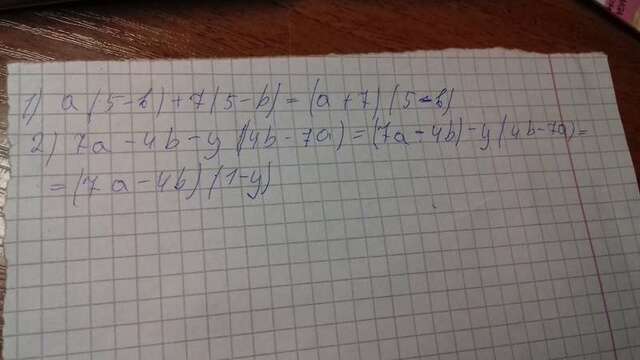 1) a (5-b)+7(5-b)=(a+7)(5-b)
2) 7a-4b-y (4b-7a)=(7a-4b)-y(4b-7a)=
=(7a-4b)(1-y)